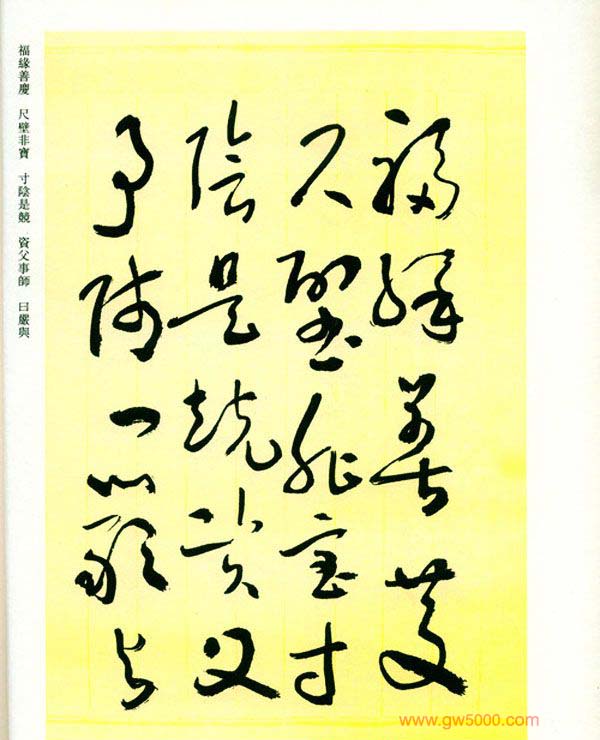 福緣善慶
尺璧非寶寸
陰是競資父
事師曰嚴與
福緣善慶　尺壁非寶　寸陰是競　資父事師　曰嚴與
www.gw5000.com